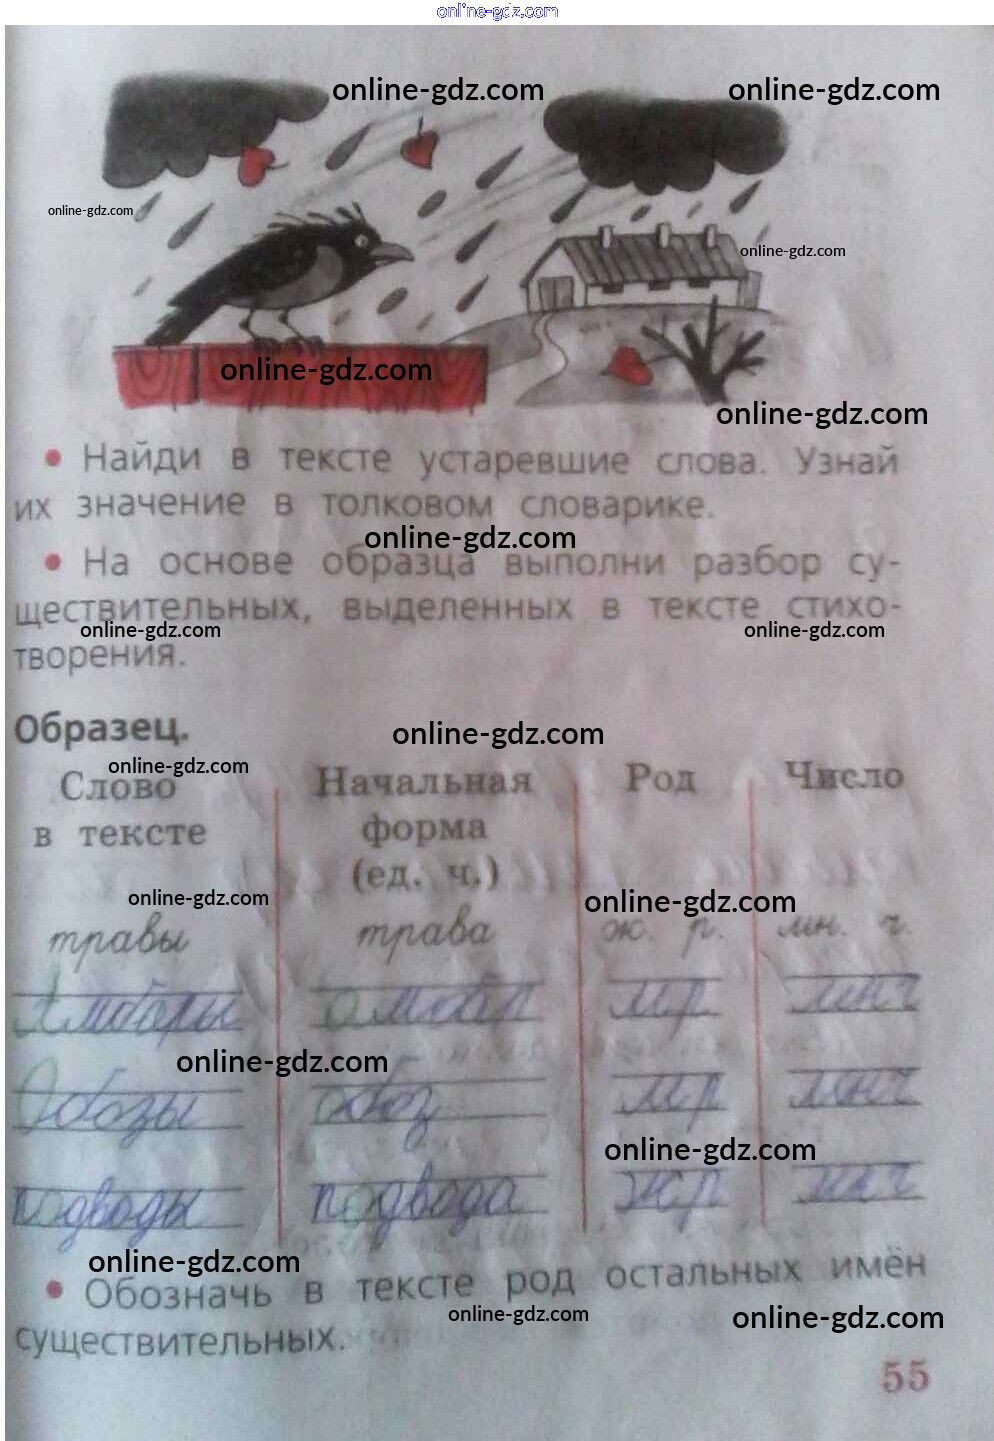 online-gdz.com
online-gdz.com online-gdz.com
online-gdz.com
online-gdz.com
online-gdz.com
online-gdz.com
• Найди в тексте устаревшие слова. Узнай
их значение в толковом словарике.
online-gdz.com
• На основе образца выполни разбор су-
ществительных, выделенных в тексте стихо-
online-gdz.com online-gdz.com
творения.
Образец.
online-gdz.com
online-gdz.com
Слово Начальная Род Число
в тексте форма
(ед. ч.)
online-gdz.com online-gdz.com
травы трава ж. р. мн. ч.
Амбары амбар мр мнч
online-gdz.com
Обозы обоз мр мнч
online-gdz.com
подводы подвода жр мнч
online-gdz.com
• Обозначь в тексте род остальных имён
online-gdz.com online-gdz.com
существительных.
55